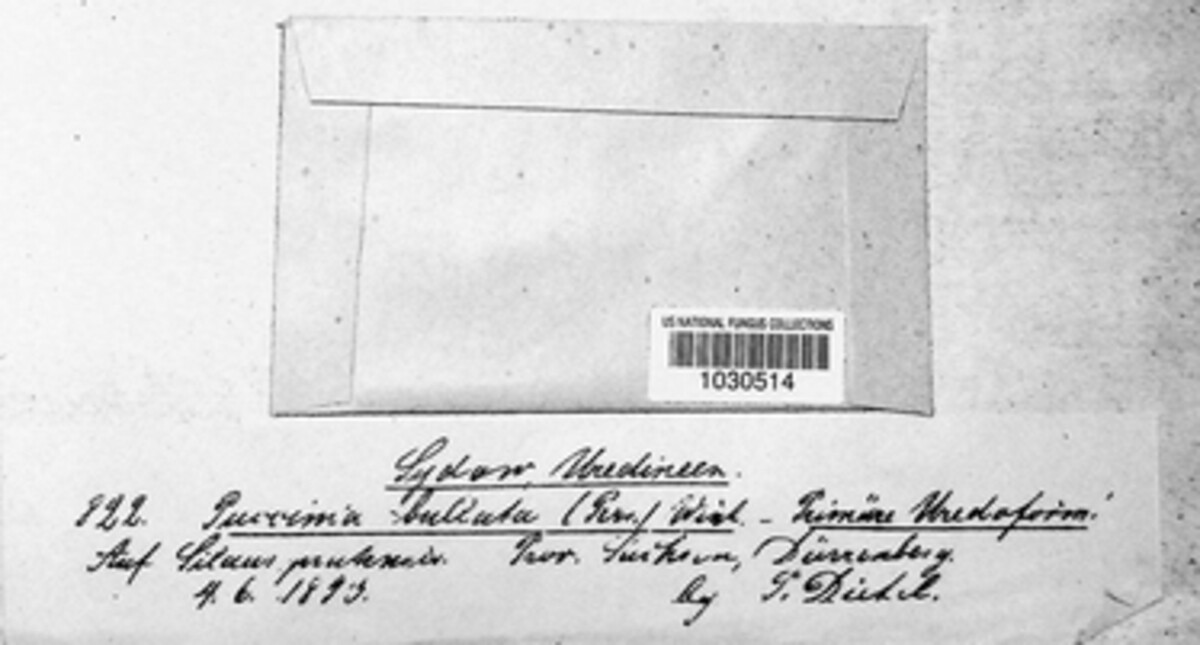 US NATIONAL FUNGUS COLLECTIONS
1030514
Sydow, Uredineen.
822. Puccinia bullata (Pers.) Wint. - Primäre Uredoform!
Auf Silaus pratensis. Prov. Sachsen, Dürrenberg.
4. 6. 1893. lg P. Dietel.